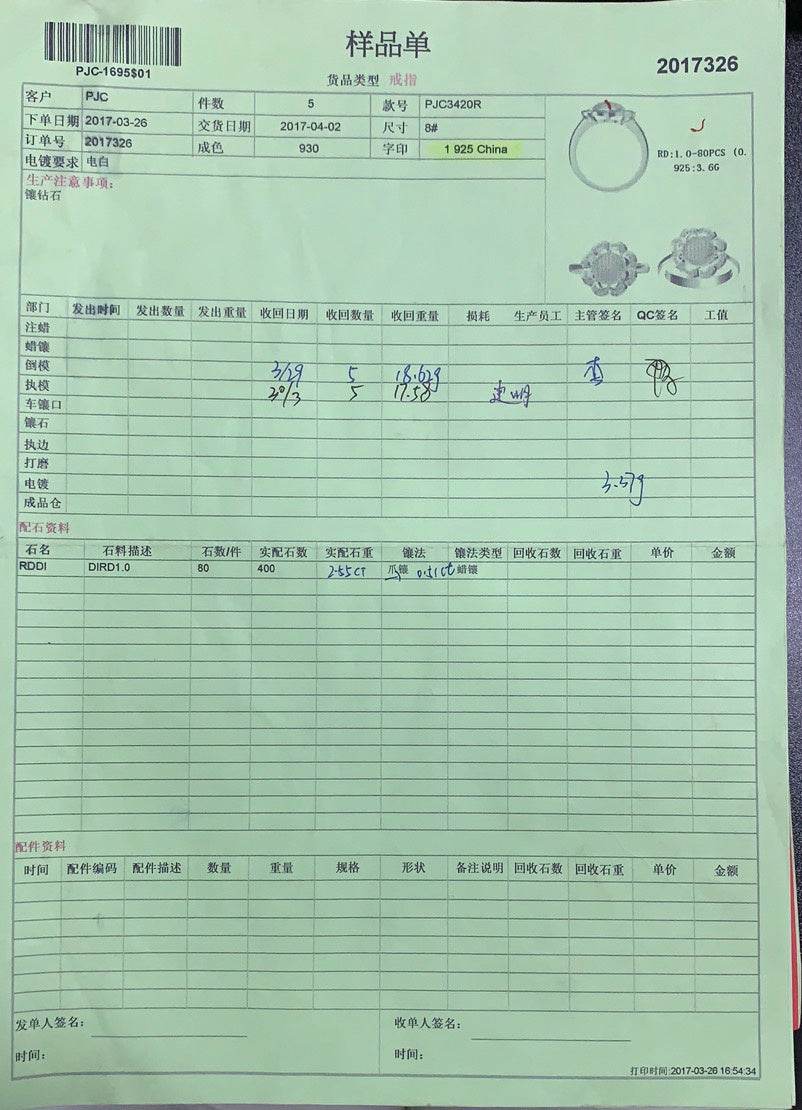 样品单
PJC-1695$01
货品类型 戒指
2017326
客户 PJC 件数 5 款号 PJC3420R
下单日期 2017-03-26 交货日期 2017-04-02 尺寸 8#
订单号 2017326 成色 930 字印 1 925 China
电镀要求 电白
RD:1.0-80PCS (0.
925:3.6G
生产注意事项:
镶钻石
部门 发出时间 发出数量 发出重量 收回日期 收回数量 收回重量 损耗 生产员工 主管签名 QC签名 工值
注蜡
蜡镶
倒模 3/29 5 18.62g
执模 30/3 5 17.58
车镶口
镶石
执边
打磨
电镀 3.57g
成品仓
配石资料
石名 石料描述 石数/件 实配石数 实配石重 镶法 镶法类型 回收石数 回收石重 单价 金额
RDDI DIRD1.0 80 400 2.55CT 爪镶 0.51ct 蜡镶
配件资料
时间 配件编码 配件描述 数量 重量 规格 形状 备注说明 回收石数 回收石重 单价 金额
发单人签名: 收单人签名:
时间: 时间:
打印时间:2017-03-26 16:54:34